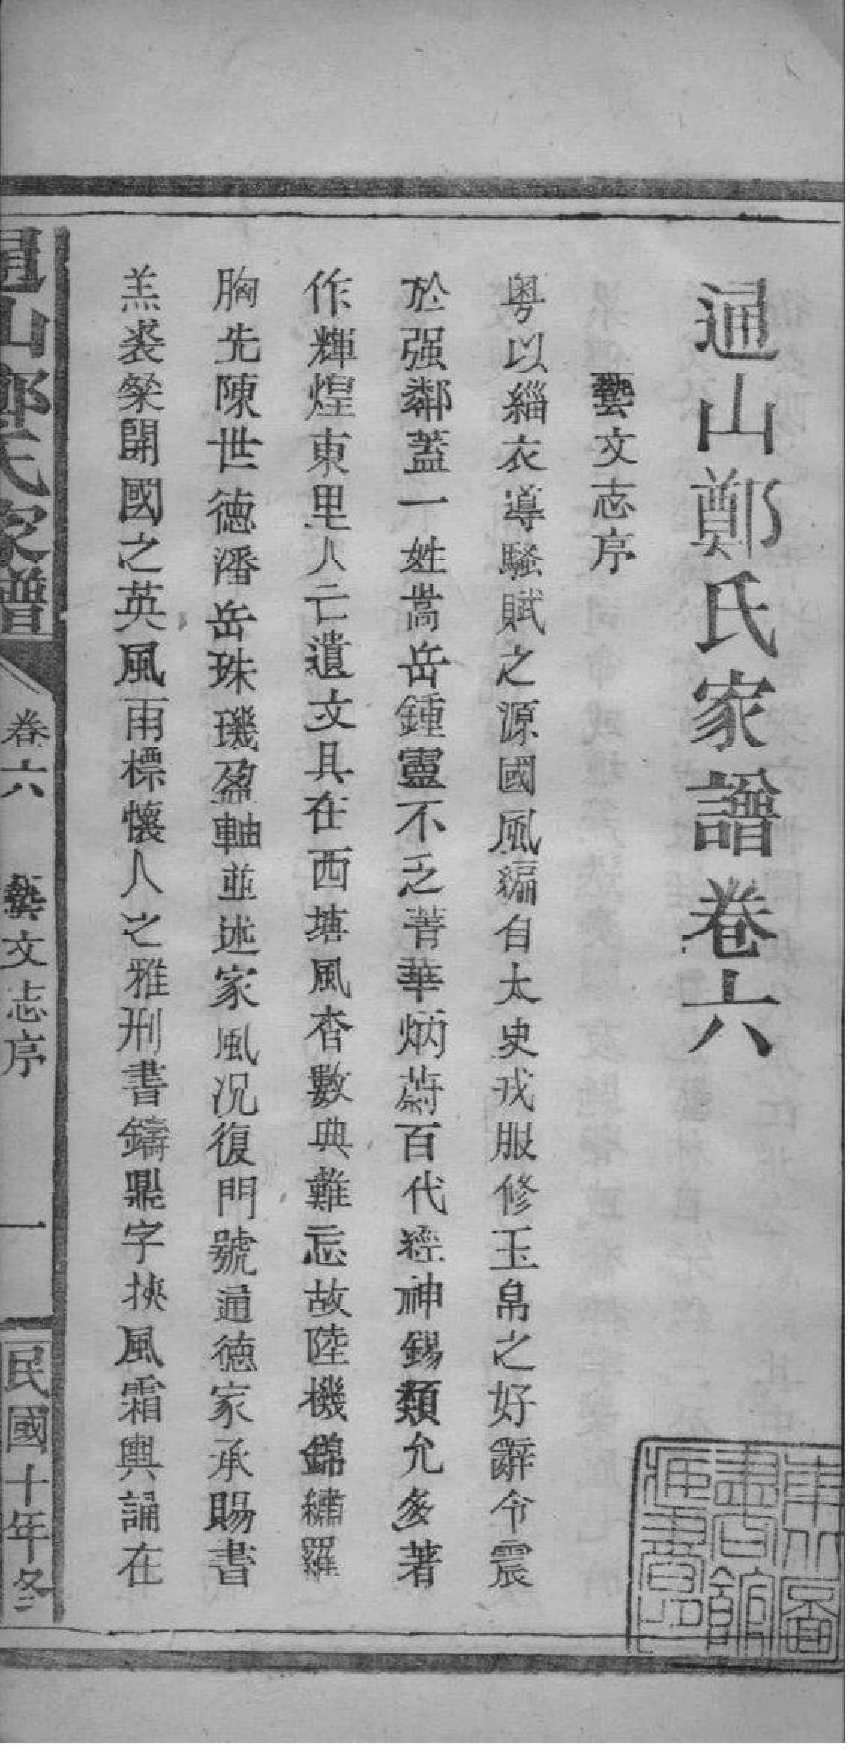 通山鄭氏家譜卷六
藝文志序
粵以緇衣導騷賦之源國風編自太史戎服修玉帛之好辭令震
於强鄰蓋一姓嵩岳鍾靈不乏菁華炳蔚百代經神錫類允多著
作輝煌東里人亡遺文具在西塘風杳數典難忘故陸機錦繡羅
胸先陳世德潘岳珠璣盈軸並述家風况復門號通德家承賜書
羔裘粲開國之英風雨標懷人之雅刑書鑄鼎字挾風霜輿誦在
通山鄭氏家譜
卷六
藝文志序
一
民國十年修